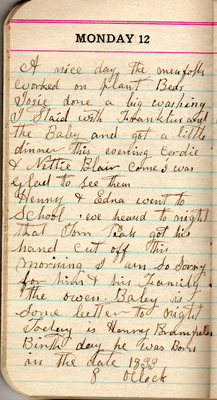 MONDAY 12
A nice day the menfolks
worked on plant Beds
Josie done a big washing
I Staid with Franklin and
the Baby and got a little
dinner this evening Cordie
& Nettie Blair Comes was
Glad to see them
Henry & Edna went to
School. we heard to night
that Tom Peak got his
hand cut off this
morning I am so Sorry
for him & his Family
the owen Baby is
Some better to night
Today is Henry
Birth day he was Born
in the date 1898
8 oclock